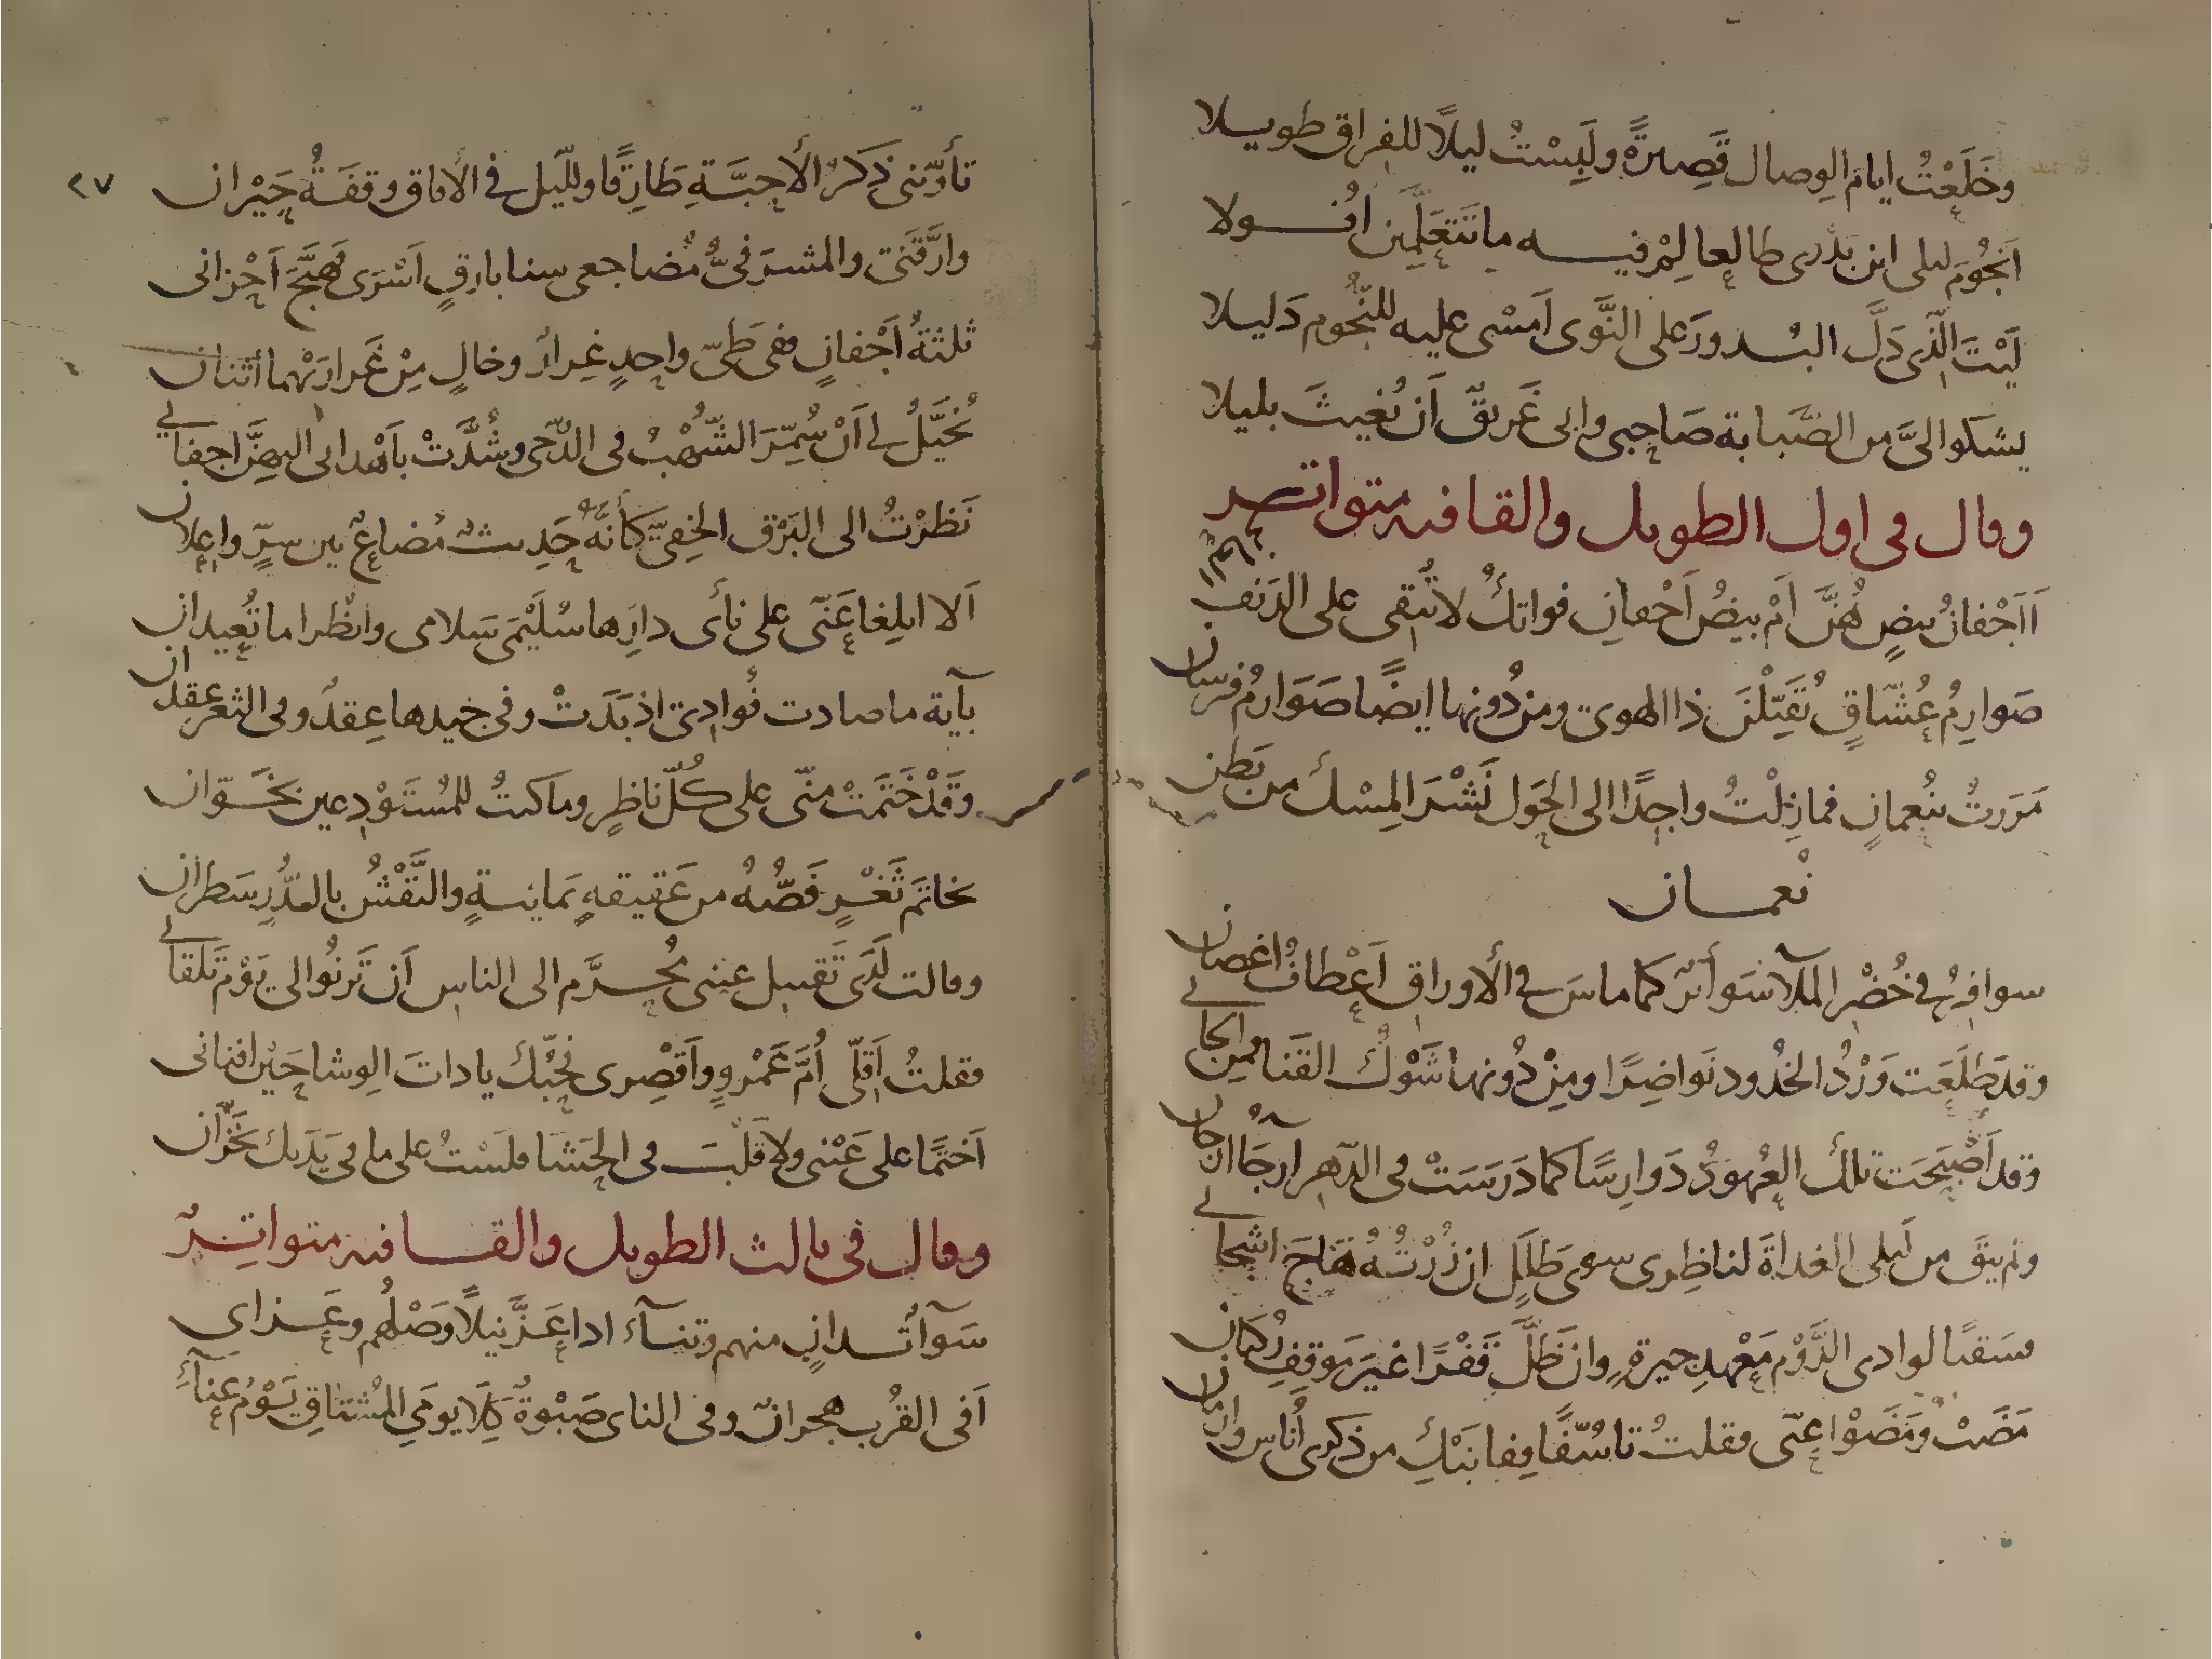 وخَلَعْتُ ايام الوِصال قَصِيرةً ولَبِسْتُ ليلاً للفِراق طويلا
اَنجُومَ ليلى اين بَدْرى طالعا لِمْ فيه ما تَتَعَلَّمِين اُفولا
لَيْتَ الّذى دَلَّ البُدورَ على النَّوى اَمسْى عليه للنّجُوم دَليلا
يشكوا الىَّ من الصَّبابة صَاحِبى وابى غَريقٌ اَن يُغيثَ بليلا
وقال فى اول الطويل والقافيه متواتر
اَاَجْفانُ بيضٍ هُنَّ اَمْ بيضُ اَجْفانِ فواتكُ لا تُبقى على الدَنِف
صَوارِمُ عُشّاقٍ يُقَتِّلْنَ ذا الهوى ومن دُونها ايضًا صَوَارمُ فرسان
مَرَرتُ بنُعمانٍ فما زِلْتُ واجِدًا الى الحَول نَشْرَ المِسْك من بَطن
نُعمان
سوافِرُ فى خُضْر المُلآ سَوائرٌ كما ماسَ فى الأوراق اَعْطافُ اغصان
وقد طَلَعَت وَرْدُ الخدُود نَواضِرًا ومِنْ دُونها شَوْكُ القَنا فمن الجانى
وقد اَصْبَحَت تلك العُهودُ دَوارِسًا كما دَرَسَتْ فى الدّهر آرجَاان
ولم يبقَ من لَيلى الغداةَ لناظِرى سوى طَلَلٍ ان زُرْتُهُ هَاجَ اشجانى
فسَقيًا لوادى الدَّوْم مَعْهدِ جيرةٍ وان ظَلَّ قَفْرًا غيرَ مَوقِفِ رُكبان
مَضَتْ ومَضَوْا عنّى فقلتُ تاسُّفًا قِفا نَبْكِ من ذكرى اُناسٍ وازمان
٢٧
تأوّبنى ذكرُ الأحِبَّةِ طَارِقًا ولِلّيل فى الآفاق وقفَةُ حَيْران
وارَّقَنى والمشرَفىُّ مُضاجعى سنا بارقٍ اَسْرَى فهَيَّجَ اَحْزانى
ثلثةُ اَجْفانٍ ففى طَىّ واحِدٍ غِرارٌ وخالٍ مِنْ غَرارَيْهما اثنان
يُخَيَّلُ لى اَنْ سُمِّرَ الشّهْبُ فى الدّجى وشُدَّتْ باَهْدابى اليهنَّ اجفانى
نَظرْتُ الى البَرْق الخِفىّ كأنّهُ حَدِيثٌ مُضاعٌ بين سِرٍّ واعلان
اَلا ابلِغا عَنّى على نأى دارِها سُلَيْمَى سَلامى وانظرا ما تُعيدان
بآية ما صادت فُوادى اذ بَدَتْ وفى جيدها عِقدٌ وفى الثغر عِقدان
وقَدْ خَتَمَتْ منّى على كُلّ ناظِرٍ وما كنتُ للمُستَوْدِعين بخَوّان
بخاتَم ثَغْرٍ فَصُّهُ من عَقيقهٍ يَمانيةٍ والنَّقْشُ بالدُّر سَطران
وقالت لَدَى تَقبيل عينى مُحَرَّم الى الناس اَن تَرنُوا الى يَوْمَ تَلقانى
فقلتُ اَقِلّى اُمَّ عَمْروٍ واَقْصِرى فحُبّكِ يا ذاتَ الوِشاحَيْن افنانى
اَختمًا على عَيْنى ولا قَلْبَ فى الحَشَا فلَسْتُ على ما فى يَدَيكِ بخَزّان
وقال فى ثالث الطويل والقافيه متواتِرٌ
سَوآءٌ تَدانٍ منهم وتنآءِ اذا عَزَّ نيلاً وَصْلُهم وعَزاى
اَفى القُرب هِجرانٌ وفى الناى صَبْوةٌ كِلَا يومَىِ المُشتاق يَوْمُ عنآءِ